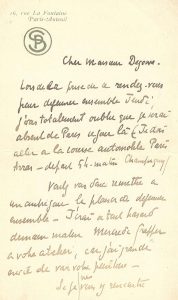 16, rue La Fontaine
Paris-Auteuil
Cher Monsieur
Lors de la prise de rendez-vous
pour déjeuner ensemble Jeudi,
j'avais totalement oublié que je serai
absent de Paris ce jour là (Je dois
aller à la course automobile Paris
départ 5h. matin
donc remettre à
un autre jour le plaisir de déjeuner
ensemble - J'irai à tout hasard
demain matin Mercredi frapper
à votre atelier, car j'ai grande
envie de voir votre peinture -
Si je vous y rencontre